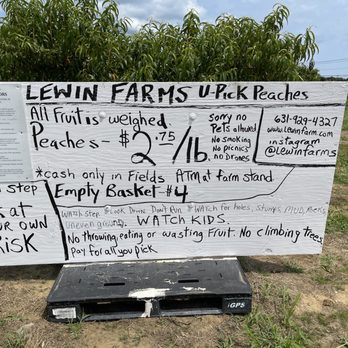 LEWIN FARMS U-Pick Peaches
All Fruit is weighed
Peaches - $2.75/lb.
sorry no
Pets allowed
No smoking
No picnics
no drones
631-929-4327
www.lewinfarm.com
instagram
@Lewinfarms
*cash only in Fields ATM at farm stand
Empty Basket $4
step
at
OUR OWN
RISK
Watch step Look Down Don't Run Watch for holes, stumps, mud,
uneven ground. WATCH KIDS.
No throwing, eating or wasting Fruit. No climbing trees
Pay for all you pick
iGPS